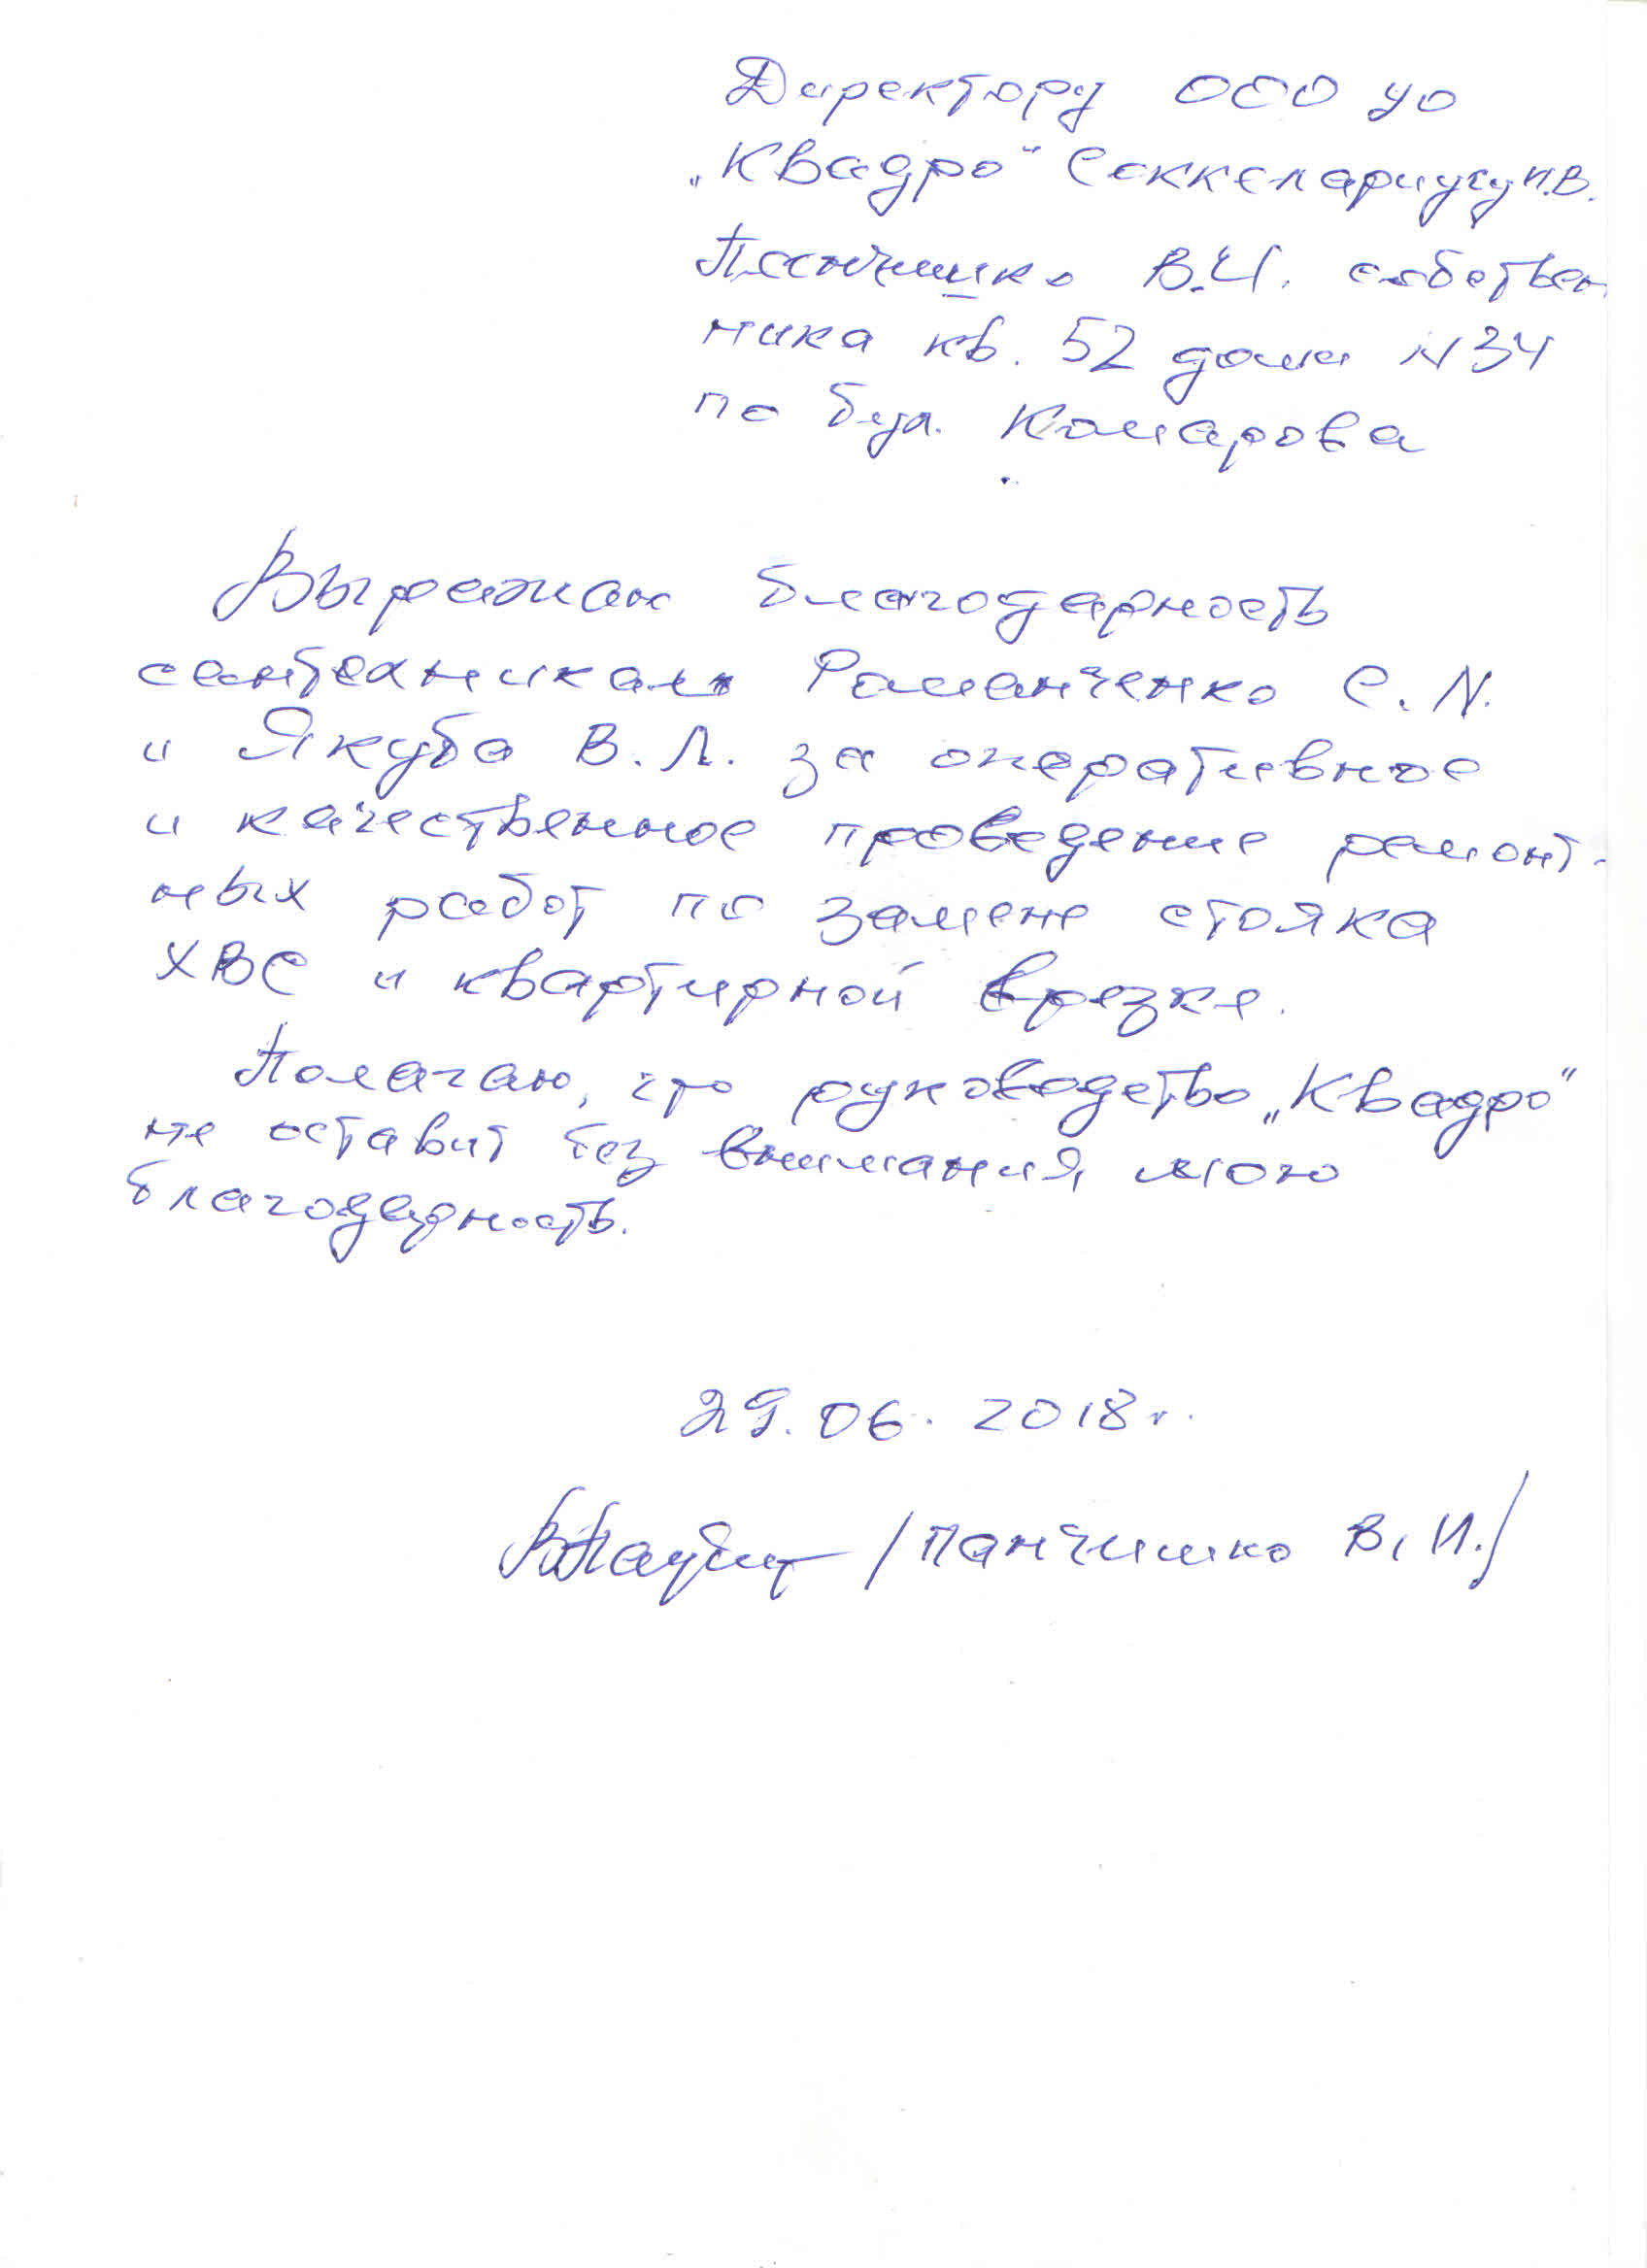 Директору ООО УО
„Квадро" Секкелариусу П.В.
Панчишко В.И. собствен
ника кв. 52 дома N34
по бул. Комарова
Выражаю благодарность
сантехникам Романченко С. N.
и Якуба В. Л. за оперативное
и качественное проведение ремонт-
ных работ по замене стояка
ХВС и квартирной врезке.
Полагаю, что руководство „Квадро"
не оставит без внимания мою
благодарность.
29. 06. 2018 г.
/Панчишко В. И./